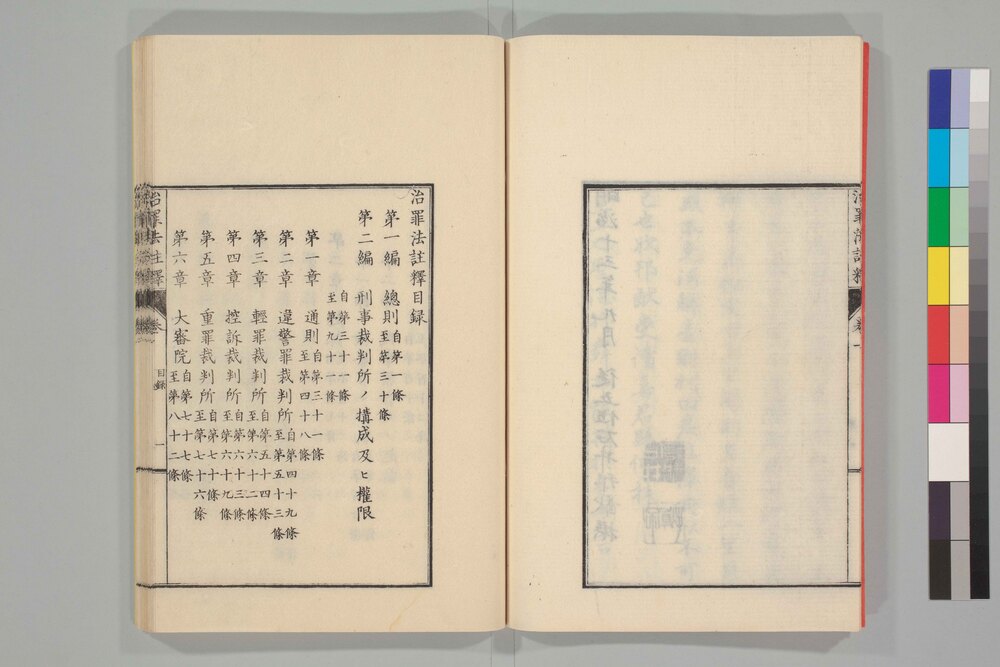 治罪法註釋 卷一
治罪法註釋目録
第一編 總則 自第一條 至第三十條
第二編 刑事裁判所ノ搆成及ヒ權限
自第三十一條 至第九十一條
第一章 通則 自第三十一條 至第四十八條
第二章 違警罪裁判所 自第四十九條 至第五十三條
第三章 輕罪裁判所 自第五十四條 至第六十二條
第四章 控訴裁判所 自第六十三條 至第六十九條
第五章 重罪裁判所 自第七十條 至第七十六條
第六章 大審院 自第七十七條 至第八十二條
治罪法註釋 卷 目録 一